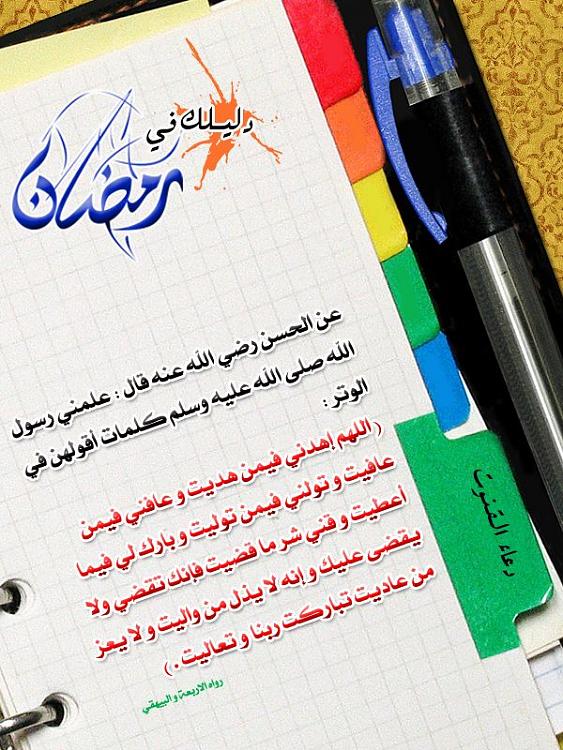 دليلك في
رمضان
عن الحسن رضي الله عنه قال : علمني رسول
الله صلى الله عليه وسلم كلمات أقولهن في
الوتر :
( اللهم إهدني فيمن هديت و عافني فيمن
عافيت و تولني فيمن توليت و بارك لي فيما
أعطيت و قني شر ما قضيت فإنك تقضي ولا
يقضى عليك و إنه لا يذل من واليت و لا يعز
من عاديت تباركت ربنا و تعاليت . )
رواه الاربعة و البيهقي
دعاء القنوت